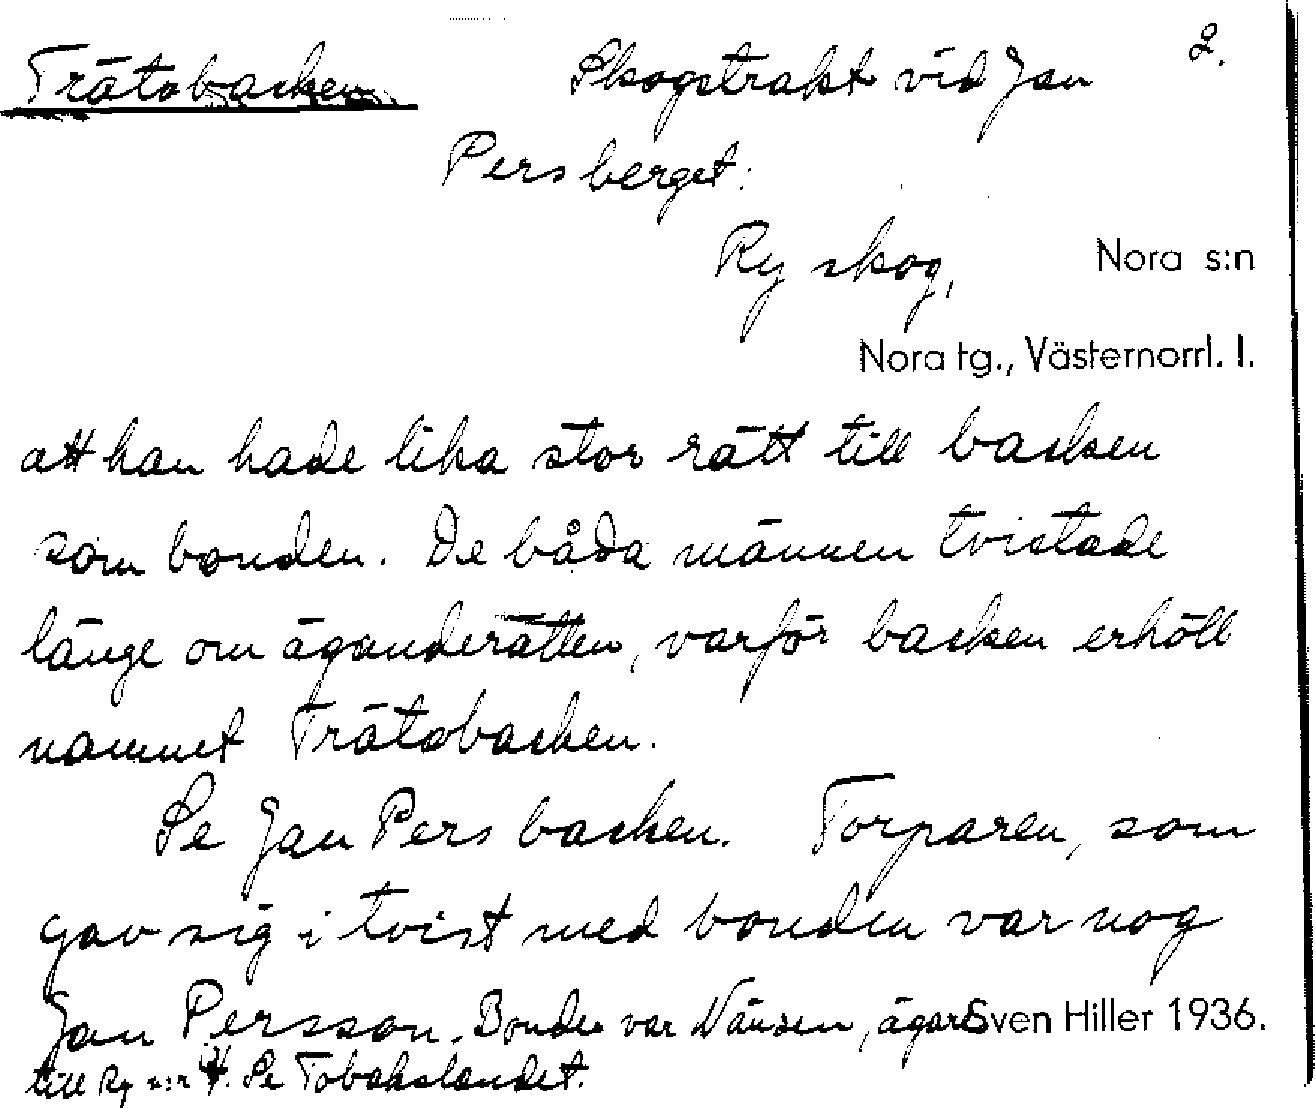 2.
Trätobacken Skogstrakt vid Jan
Persberget.
Ry skog, Nora s:n
Nora tg., Västernorrl. l.
att han hade lika stor rätt till backen
som bonden. De båda männen tvistade
länge om äganderätten, varför backen erhöll
namnet Trätobacken.
Se Jan Pers backen. Torparen, som
gav sig i tvist med bonden var nog
Jan Persson. Bonden var Nänsen, ägare Sven Hiller 1936.
till Ry n:r 4. Se Tobakslandet.